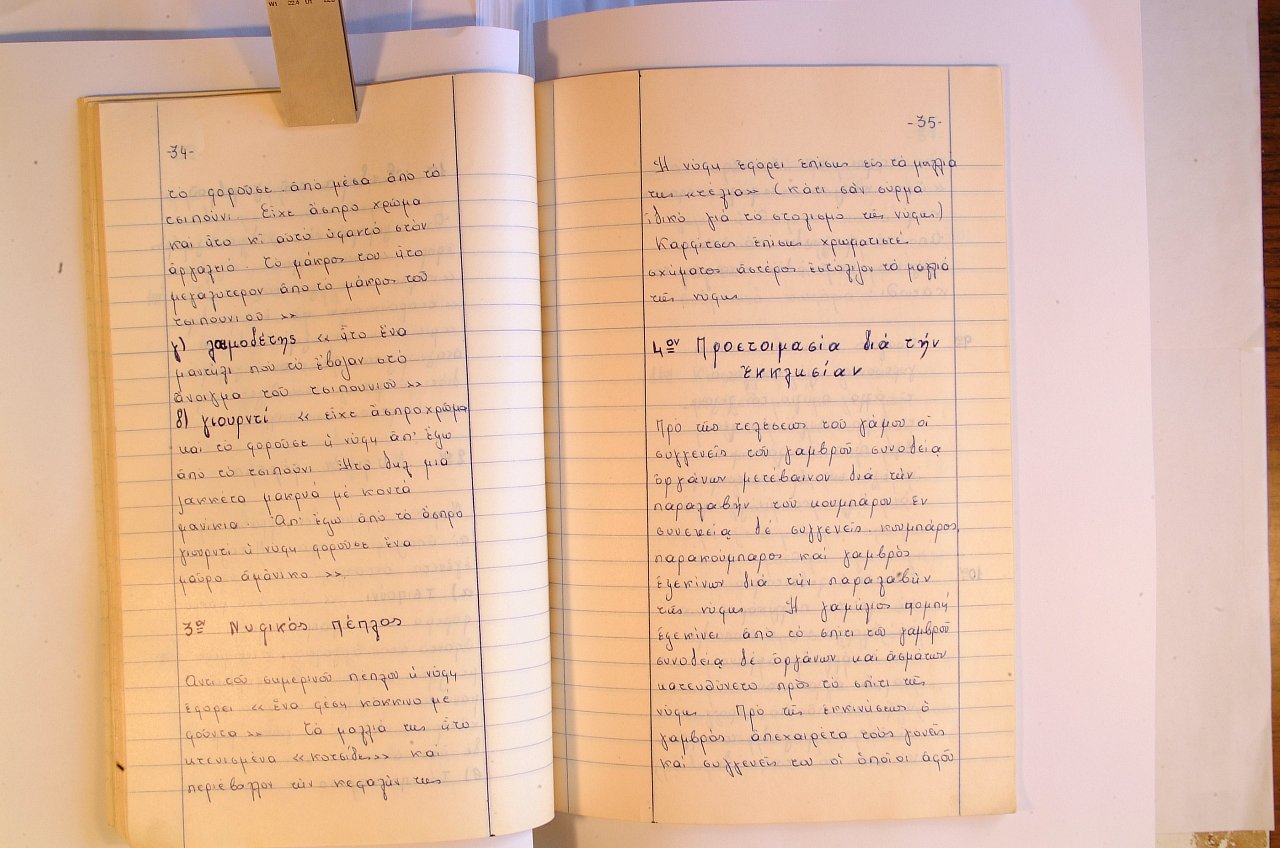 -34-
το φορούσε ἀπό μέσα ἀπο τό
τσιπούνι. Εἶχε ἄσπρο χρῶμα
καί ἦτο κί αὐτό ὑφαντό στόν
ἀργαλειό. Τό μάκρος του ἦτο
μεγαλύτερον ἀπο το μάκρος τοῦ
τσιπουνιοῦ »
γ) λαιμοδέτης « ἦτο ἕνα
μαντήλι πού τό ἔβαλαν στό
ἄνοιγμα τοῦ τσιπουνιοῦ »
δ) γιουρντί « εἶχε ἄσπρο χρῶμα
και τό φοροῦσε ἡ νύφη ἀπ' ἔξω
ἀπό τό τσιπούνι Ἦτο δηλ μιά
ζακκετα μακρυά μέ κοντά
μανικια. Ἀπ' ἔξω ἀπό τό ἄσπρο
γιουρντι ἡ νύφη φοροῦσε ἕνα
μαῦρο ἀμάνικο ».
3ον Νυφικός πέπλος
Αντι τοῦ σημερινοῦ πεπλου ἡ νύφη
ἐφορει « ἕνα φέση κόκκινο μέ
φούντα » Τά μαλλιά της ἦτο
κτενισμένα «κοτσίδες» καί
περιέβαλλον τήν κεφαλήν της
-35-
Ἡ νύφη ἐφόρει ἐπίσης εἰς τά μαλλιά
της «τέλια» (κάτι σάν συρμα
ἰδικό γιά τό στολισμό τῆς νύφης)
Καρφίτσες ἐπίσης χρωματιστές
σχήματος ἀστέρος ἐστόλιζον τά μαλλιά
τῆς νύφης
4ον Προετοιμασία διά τήν
ἐκκλησίαν
Πρό τῆς τελέσεως τοῦ γάμου οἱ
συγγενεῖς τοῦ γαμβροῦ συνοδεία
ὀργάνων μετέβαινον διά τήν
παραλαβήν τοῦ κουμπάρου ἐν
συνεχεία δέ συγγενεῖς κουμπάρος,
παρακούμπαρος καί γαμβρός
ἐξεκίνων διά τήν παραλαβήν
τῆς νύφης Ἡ γαμήλιος πομπή
ἐξεκίνει ἀπό τό σπίτι τοῦ γαμβροῦ
συνοδεία δέ ὀργάνων και ἀσμάτων
κατευθύνετο πρός τό σπίτι τῆς
νύφης Πρό τῆς ἐκκινήσεως ὁ
γαμβρός ἀπεχαιρέτα τούς γονεῖς
καί συγγενεῖς του οἱ ὁποῖοι ἀφοῦ